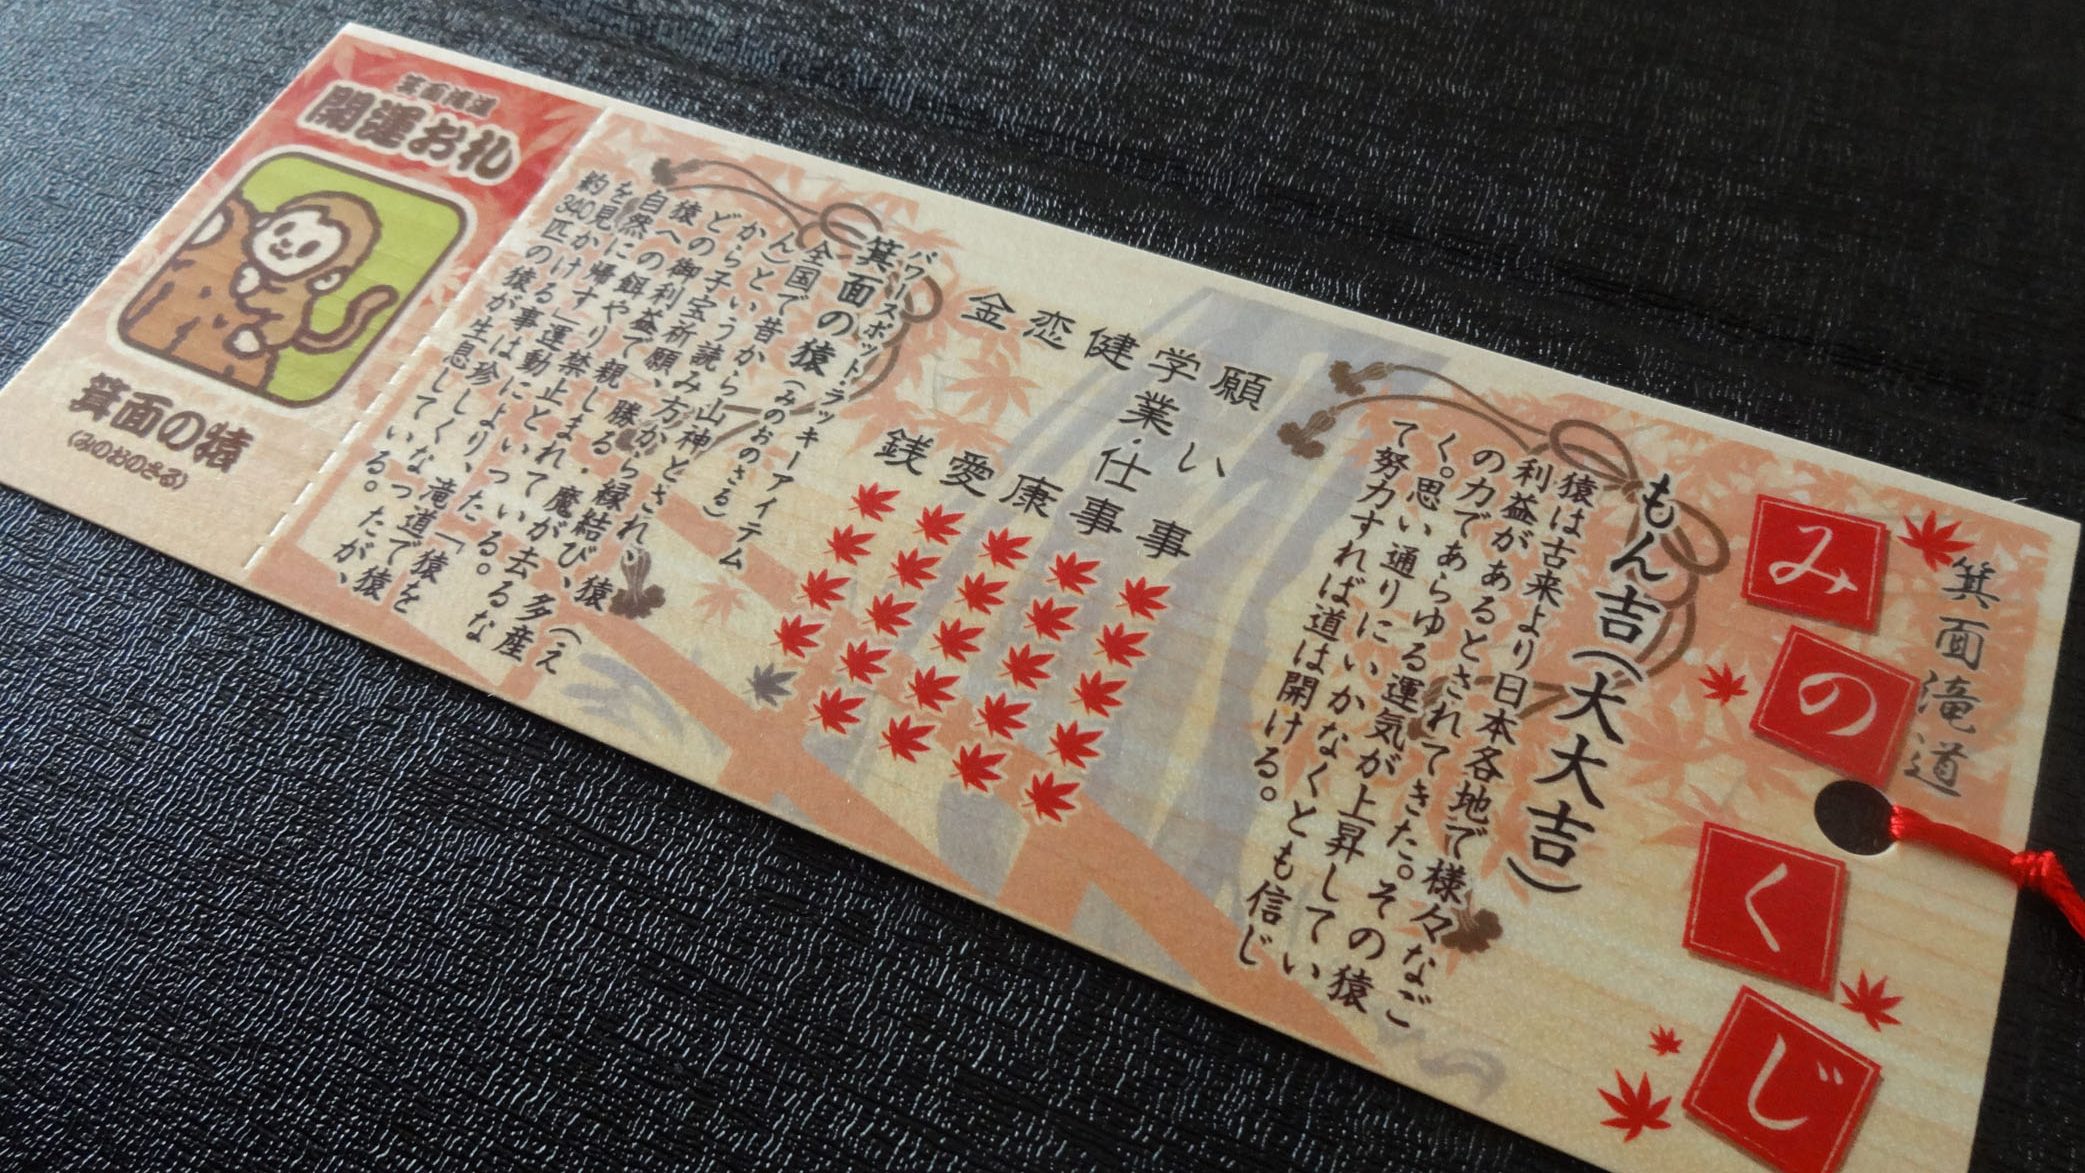 箕面滝道
みのくじ
もん吉(大大吉)
猿は古来より日本各地で様々なご
利益があるとされてきた。その猿
の力であらゆる運気が上昇してい
く。思い通りにいかなくとも信じ
て努力すれば道は開ける。
願い事
学業・仕事
健康
恋愛
金銭
パワースポット・ラッキーアイテム
箕面の猿(みのおのさる)
全国で昔から山神とされ、猿(え
ん)という読み方から縁結び、多産
から子宝祈願、勝る・魔が去るな
どの御利益で親しまれている。
猿への餌やり禁止といった「猿を
自然に帰す」運動により、滝道で猿
を見かける事は珍しくなったが、
約340匹の猿が生息している。
箕面滝道
開運お札
箕面の猿
(みのおのさる)